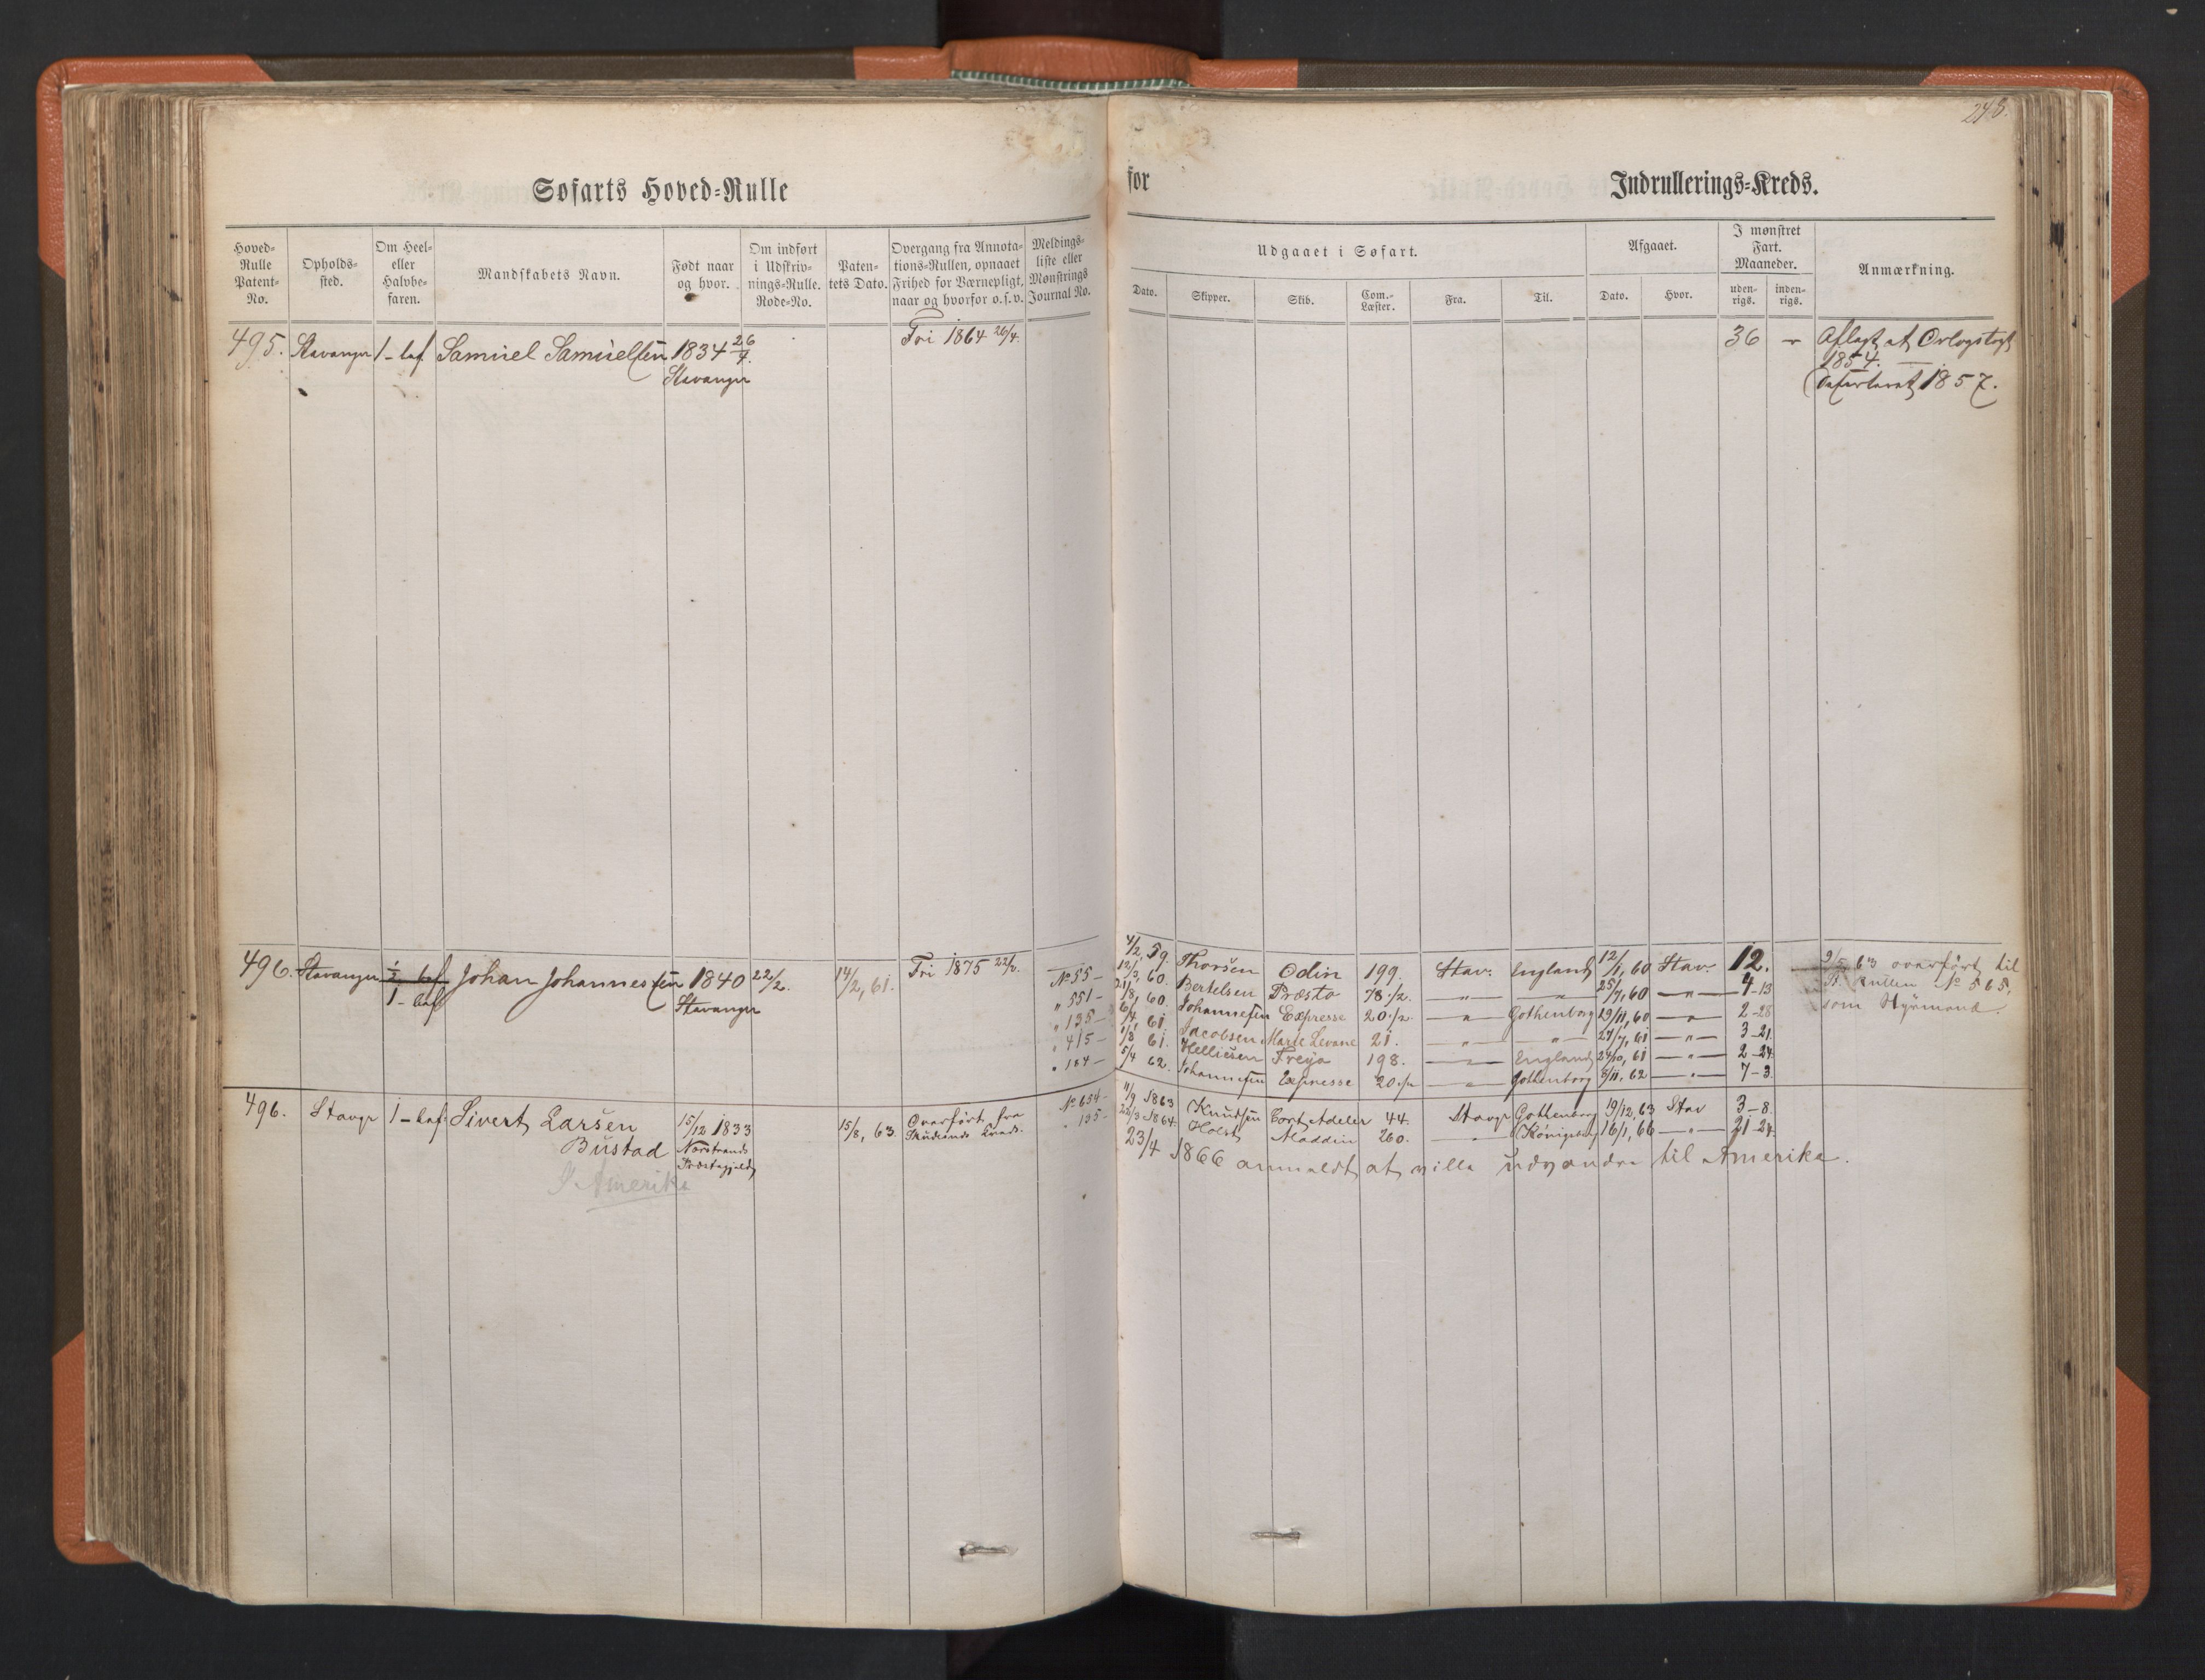 248.
Søfarts Hoved-Rulle for Indrullerings-Kreds.
Hoved-Rulle Patent-No.
Opholds-sted.
Om Heel- eller Halvbe-faren.
Mandskabets Navn.
Født naar og hvor.
Om indført i Udskriv-nings-Rulle. Rode-No.
Paten-tets Dato.
Overgang fra Annota-tions-Rullen, opnaaet Frihed for Værnepligt, naar og hvorfor o.s.v.
Meldings-liste eller Mønstrings Journal No.
Udgaaet i Søfart.
Dato. Skipper. Skib. Com.-Læster. Fra. Til.
Afgaaet.
Dato. Hvor.
I mønstret Fart. Maaneder.
uden-rigs. inden-rigs.
Anmærkning.
495. Stavanger 1-bef Samuel Samuelsen 1834 26/7. Fri 1864 26/4. 36 Aflagt et Orlogstogt
Stavanger 1854.
1857.
496. Stavanger 1/2 bef Johan Johannessen 1840 22/2. 14/2, 61. Fri 1875 22/2.
1-bef Stavanger
4/2, 59. Thorsen Odin 199. Stav: England 12/1, 60 Stav: 12. 9/5 63 overført til
No 55 - 12/3, 60. Bertelsen Præsto 78 1/2. — " — — " — 25/7, 60 — " — 4-13 St. Rullen No 565,
" 551 - 21/8, 60. Johannesen Expresse 20 1/2. — " — Gothenborg 29/11, 60 — " — 2-28 som Styrmand.
" 135 - 6/4, 61 Jacobsen Marie Levane 21. — " — — " — 27/7, 61 — " — 3-21.
" 415 - 1/8 61. Helliesen Freya 198. — " — England 24/10, 61 — " — 2-24.
" 184 - 5/4 62. Johannesen Expresse 20 1/2 — " — Gothenborg 8/11, 62 — " — 7-3.
496. Stavgr 1-bef Sivert Larsen 15/12 1833 15/8, 63. Overført fra No 654 - 11/9 1863 Knudsen Cort Adeler 44. Stavgr Gothenborg 19/12, 63 Stav 3-8.
Bustad Nerstrands Præstegjeld Skudesnæs Kreds. " 135 - 22/3 1864. Holst Aladdin 260. — " — Königsberg 16/1, 66 — " — 21-24.
I Amerika
23/4 1866 anmeldt at ville udvandre til Amerika.